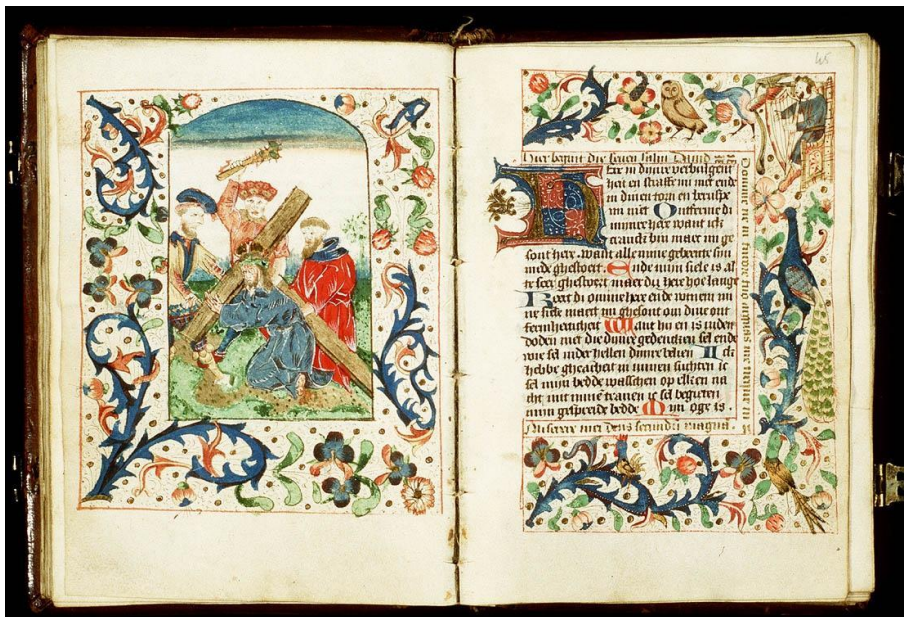 45
Hier begint die seven salm David
Ere in dinre verbolgent
heit en straffe mi niet ende
in dinen torn en beruspe
mi niet Ontferme di
mijnre here want ick
cranck bin maect mi ge
sont here. want alle mine gebeente sijn
mede ghestoert. Ende mijn siele is al
te seer ghestoert maer du here hoe lange
Keert di omme here ende
sie siele maect mi ghesont om dine ont
fermherticheit Want hi en is inden
doden niet die dijnre gedencken sel ende
wie sel inder hellen dinre belien Ick
hebbe ghearbeit in minen suchten ic
sel mijn bedde wasschen op elken na
cht mit minen tranen ic sel begieten
mijn gespreide bedde Mijn oge is
Miserere mei deus secundum magna
Domine ne in furore tuo arguas me neque in